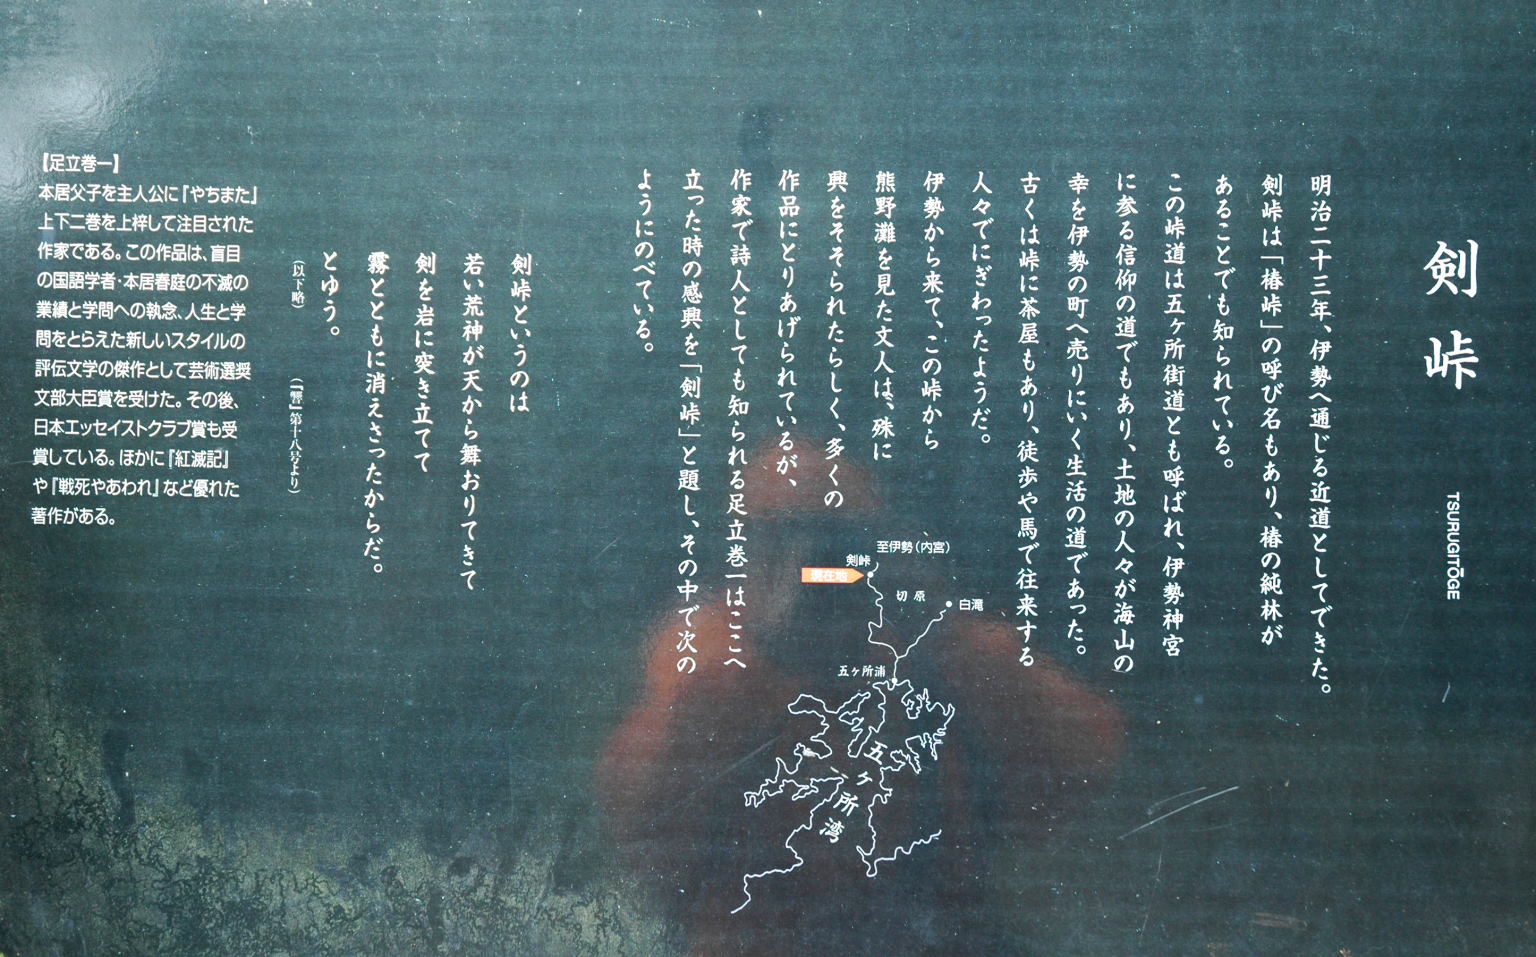 剣峠
TSURUGITŌGE
明治二十三年、伊勢へ通じる近道としてできた。
剣峠は「椿峠」の呼び名もあり、椿の純林が
あることでも知られている。
この峠道は五ヶ所街道とも呼ばれ、伊勢神宮
に参る信仰の道でもあり、土地の人々が海山の
幸を伊勢の町へ売りにいく生活の道であった。
古くは峠に茶屋もあり、徒歩や馬で往来する
人々でにぎわったようだ。
伊勢から来て、この峠から
熊野灘を見た文人は、殊に
興をそそられたらしく、多くの
作品にとりあげられているが、
作家で詩人としても知られる足立巻一はここへ
立った時の感興を「剣峠」と題し、その中で次の
ようにのべている。
剣峠というのは
若い荒神が天から舞おりてきて
剣を岩に突き立てて
霧とともに消えさったからだ。
とゆう。
(以下略)
(『響』第十八号より)
【足立巻一】
本居父子を主人公に『やちまた』
上下二巻を上梓して注目された
作家である。この作品は、盲目
の国語学者・本居春庭の不滅の
業績と学問への執念、人生と学
問をとらえた新しいスタイルの
評伝文学の傑作として芸術選奨
文部大臣賞を受けた。その後、
日本エッセイストクラブ賞も受
賞している。ほかに『紅滅記』
や『戦死やあわれ』など優れた
著作がある。
至伊勢(内宮)
剣峠
現在地
切原
白滝
五ヶ所浦
五ヶ所湾